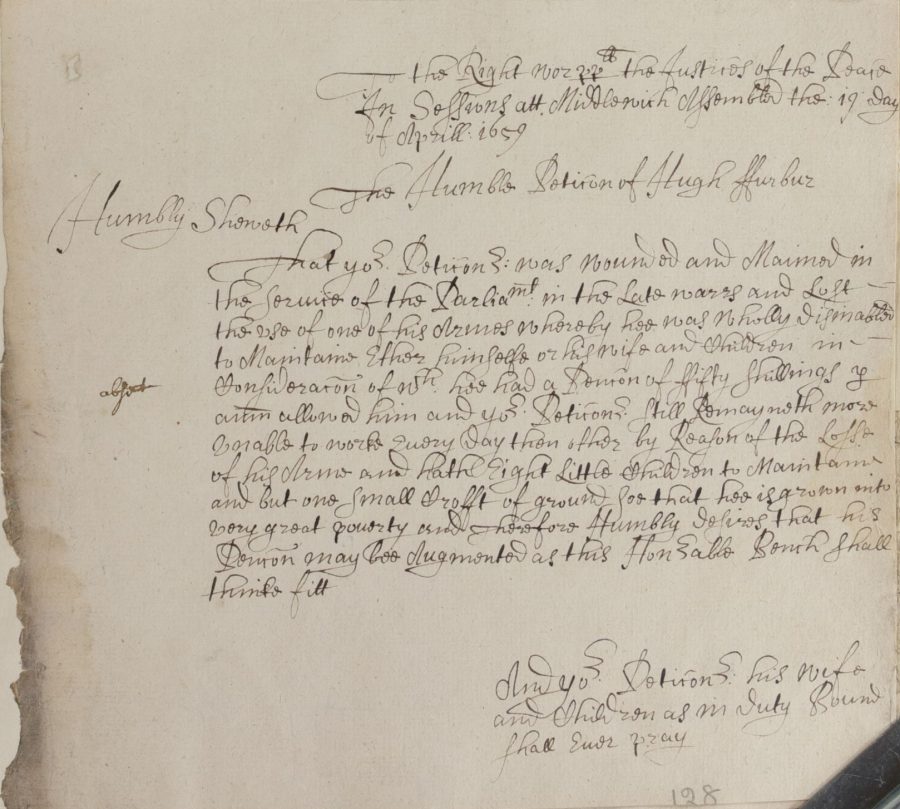 To the Right worpp^ll the Justices of the Peace
In Sessions att Middlewich Assembled the: 19 day
of Aprill: 1659
The Humble Peticōn of Hugh ffurbur
Humbly Sheweth
That yo^r. Peticon^r: was wounded and Maimed in
the service of the Parliam^t. in the Late warrs and Lost –
the vse of one of his Armes whereby hee was wholly disinabled
to Maintaine Ether himselfe or his wife and Children in –
Consideracōn of w^ch. hee had a Pencōn of ffifty shillings p
anm̄ allowed him and yo^r. Peticon^r. still Remayneth more
Vnable to worke Every day then other by Reason of the Losse
of his Arme and hath Eight Little Children to Maintaine
and but one small Crofft of ground soe that hee is grown into
very great poverty and Therefore Humbly desires that his
Pencōn may bee Augmented as this Hon^rable Bench shall
thinke fitt
absent
And yo^r. Peticon^r: his wife
and Children as in duty Bound
shall Ever pray
128